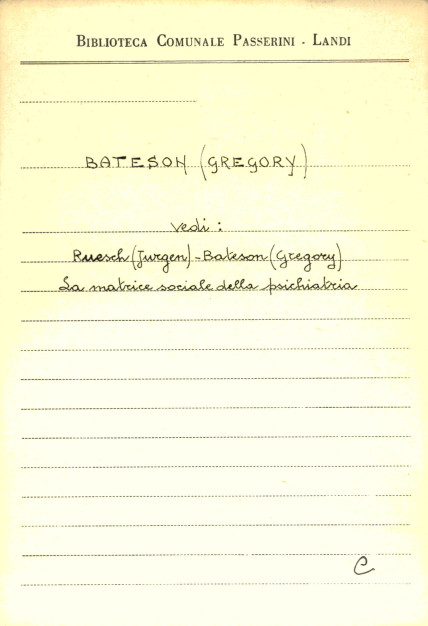 BIBLIOTECA COMUNALE PASSERINI - LANDI
BATESON (GREGORY)
vedi :
Ruesch (Jurgen) - Bateson (Gregory)
La matrice sociale della psichiatria
C